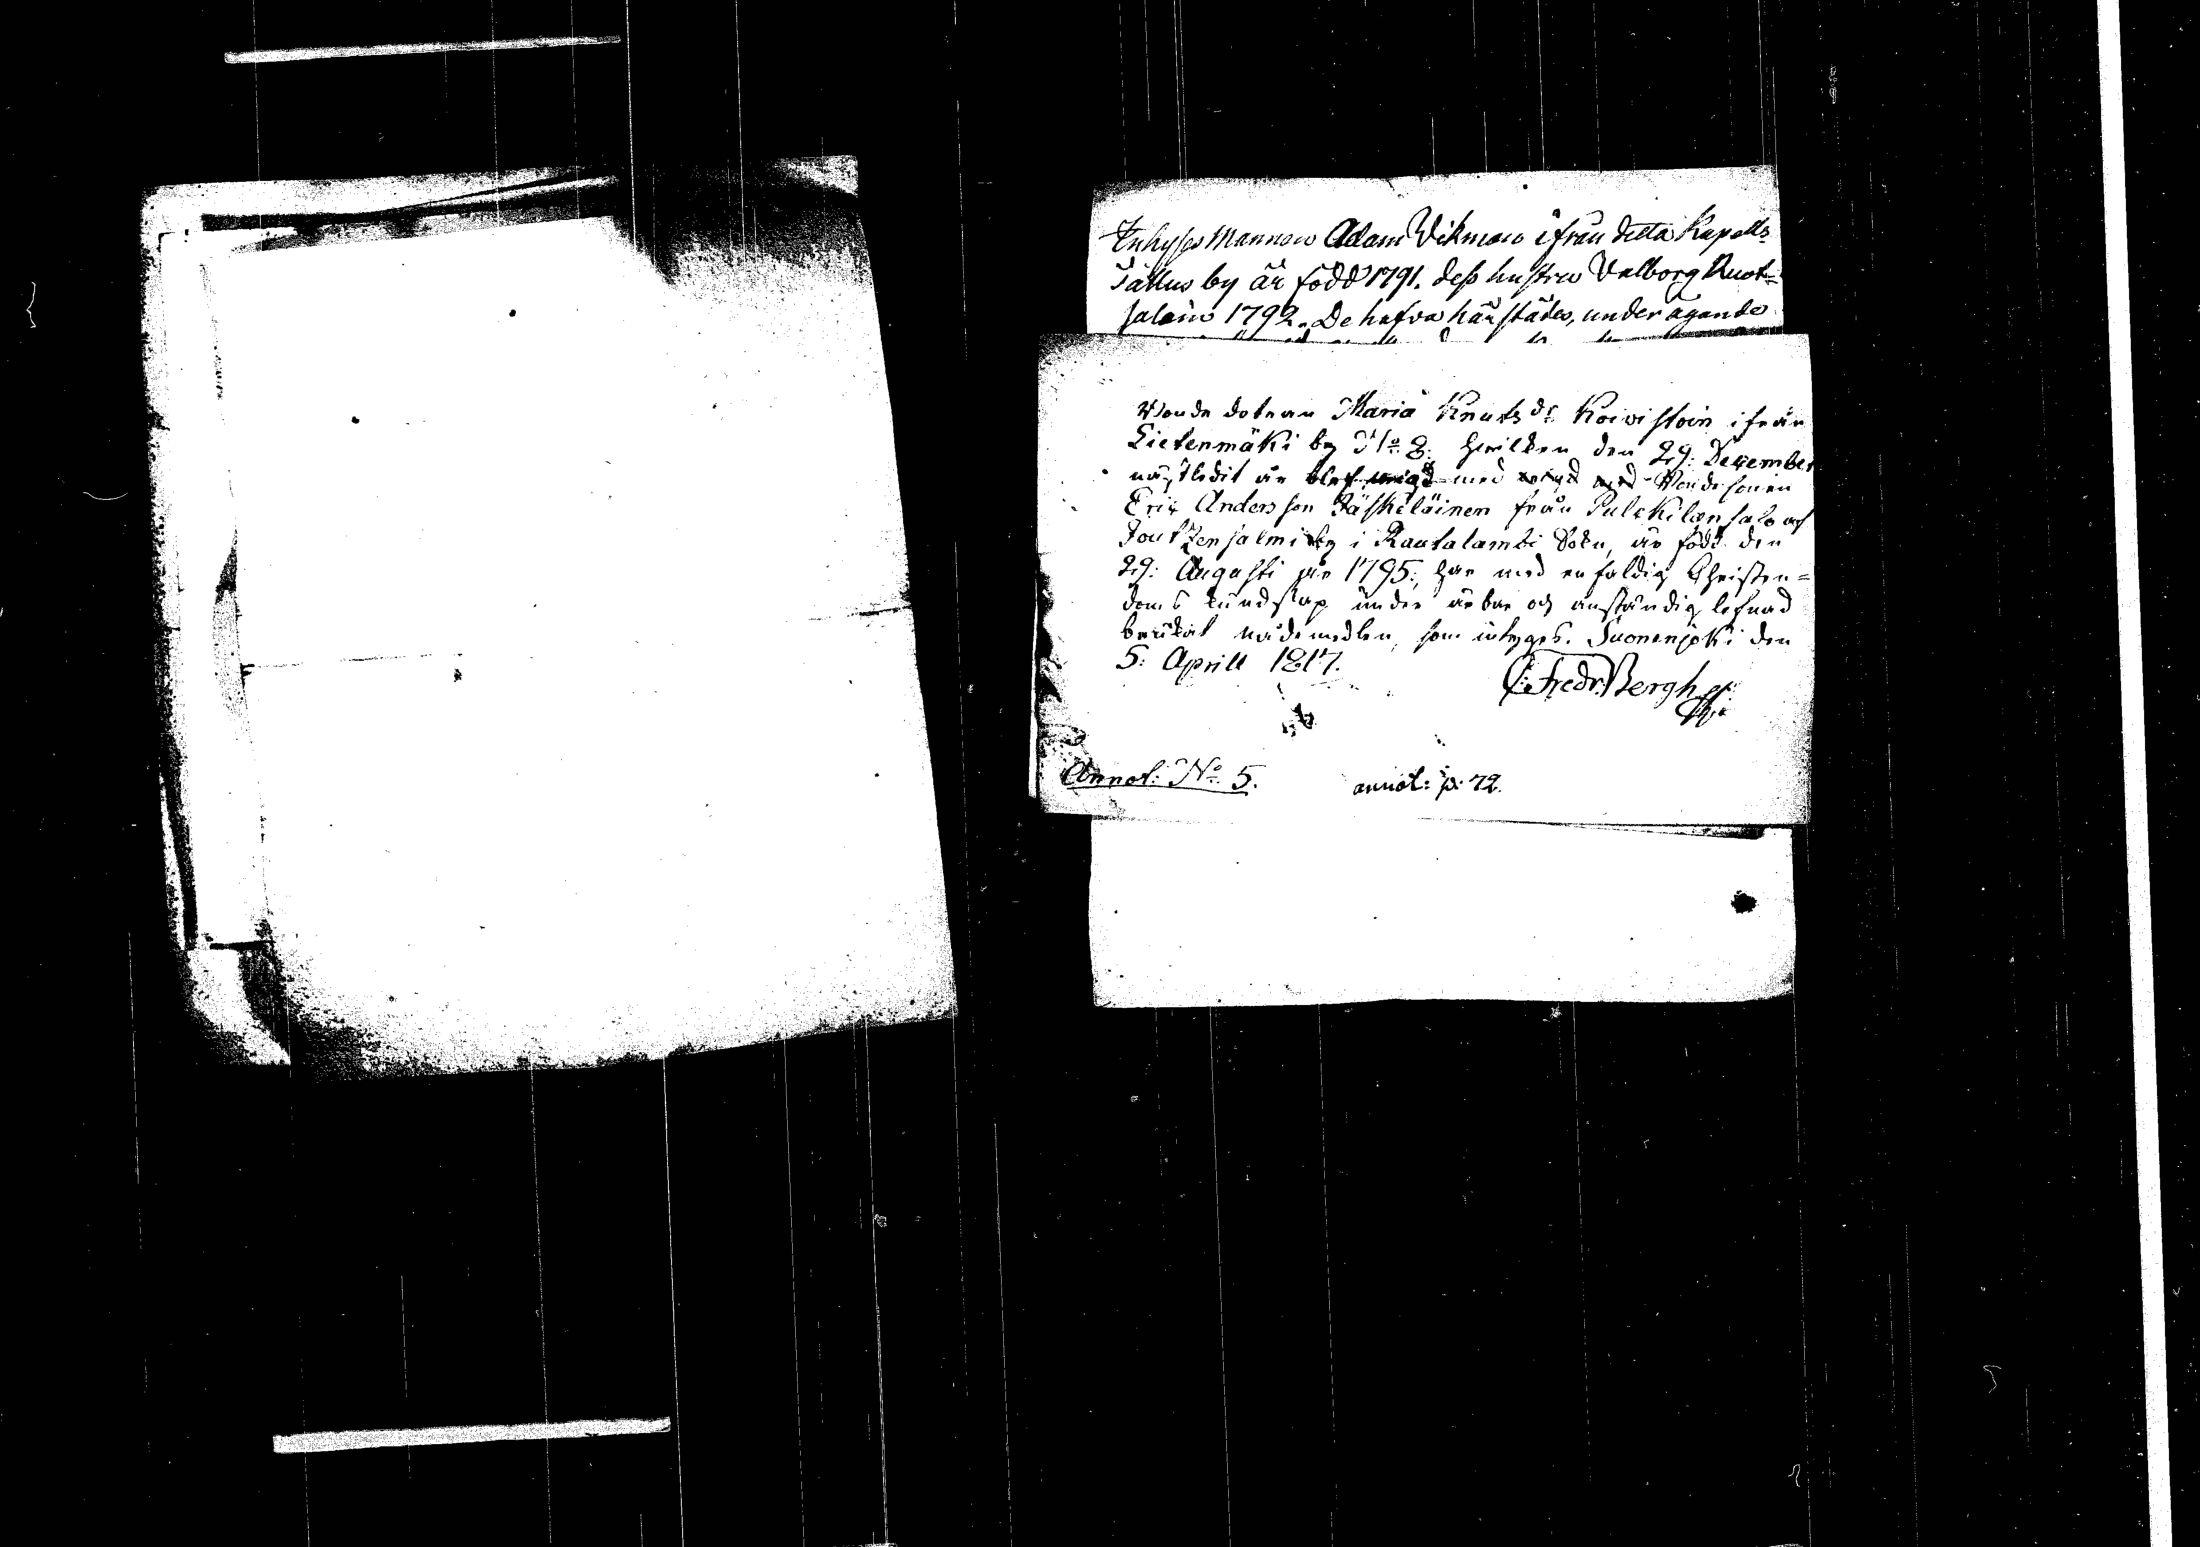 Inhyses Mannen Adam Vikman ifrån detta Kapells
Jällus by är född 1791. dess hustru Valborg Ruot-
salain 1792. De hafva härstädes, under ägande
Bonde dotran Maria Knuts dr Koivistoin ifrån
Lietenmäki by No 8. hvilken den 29: December
nästledit år blef vigd med Bondesonen
Eric Andersson Jäskeläinen från Pulckilansalo och
Joutzensalmi by i Rautalambi Sokn, är född den
29: Augusti år 1795; har med enfaldig Christen=
doms kundskap under ärbar och anständig lefnad
brukat nådemedlen, som intygas. Suonenjoki den
5: Aprill 1817.
C: Fredr: Bergh
Annot: No 5. annot: p: 72.